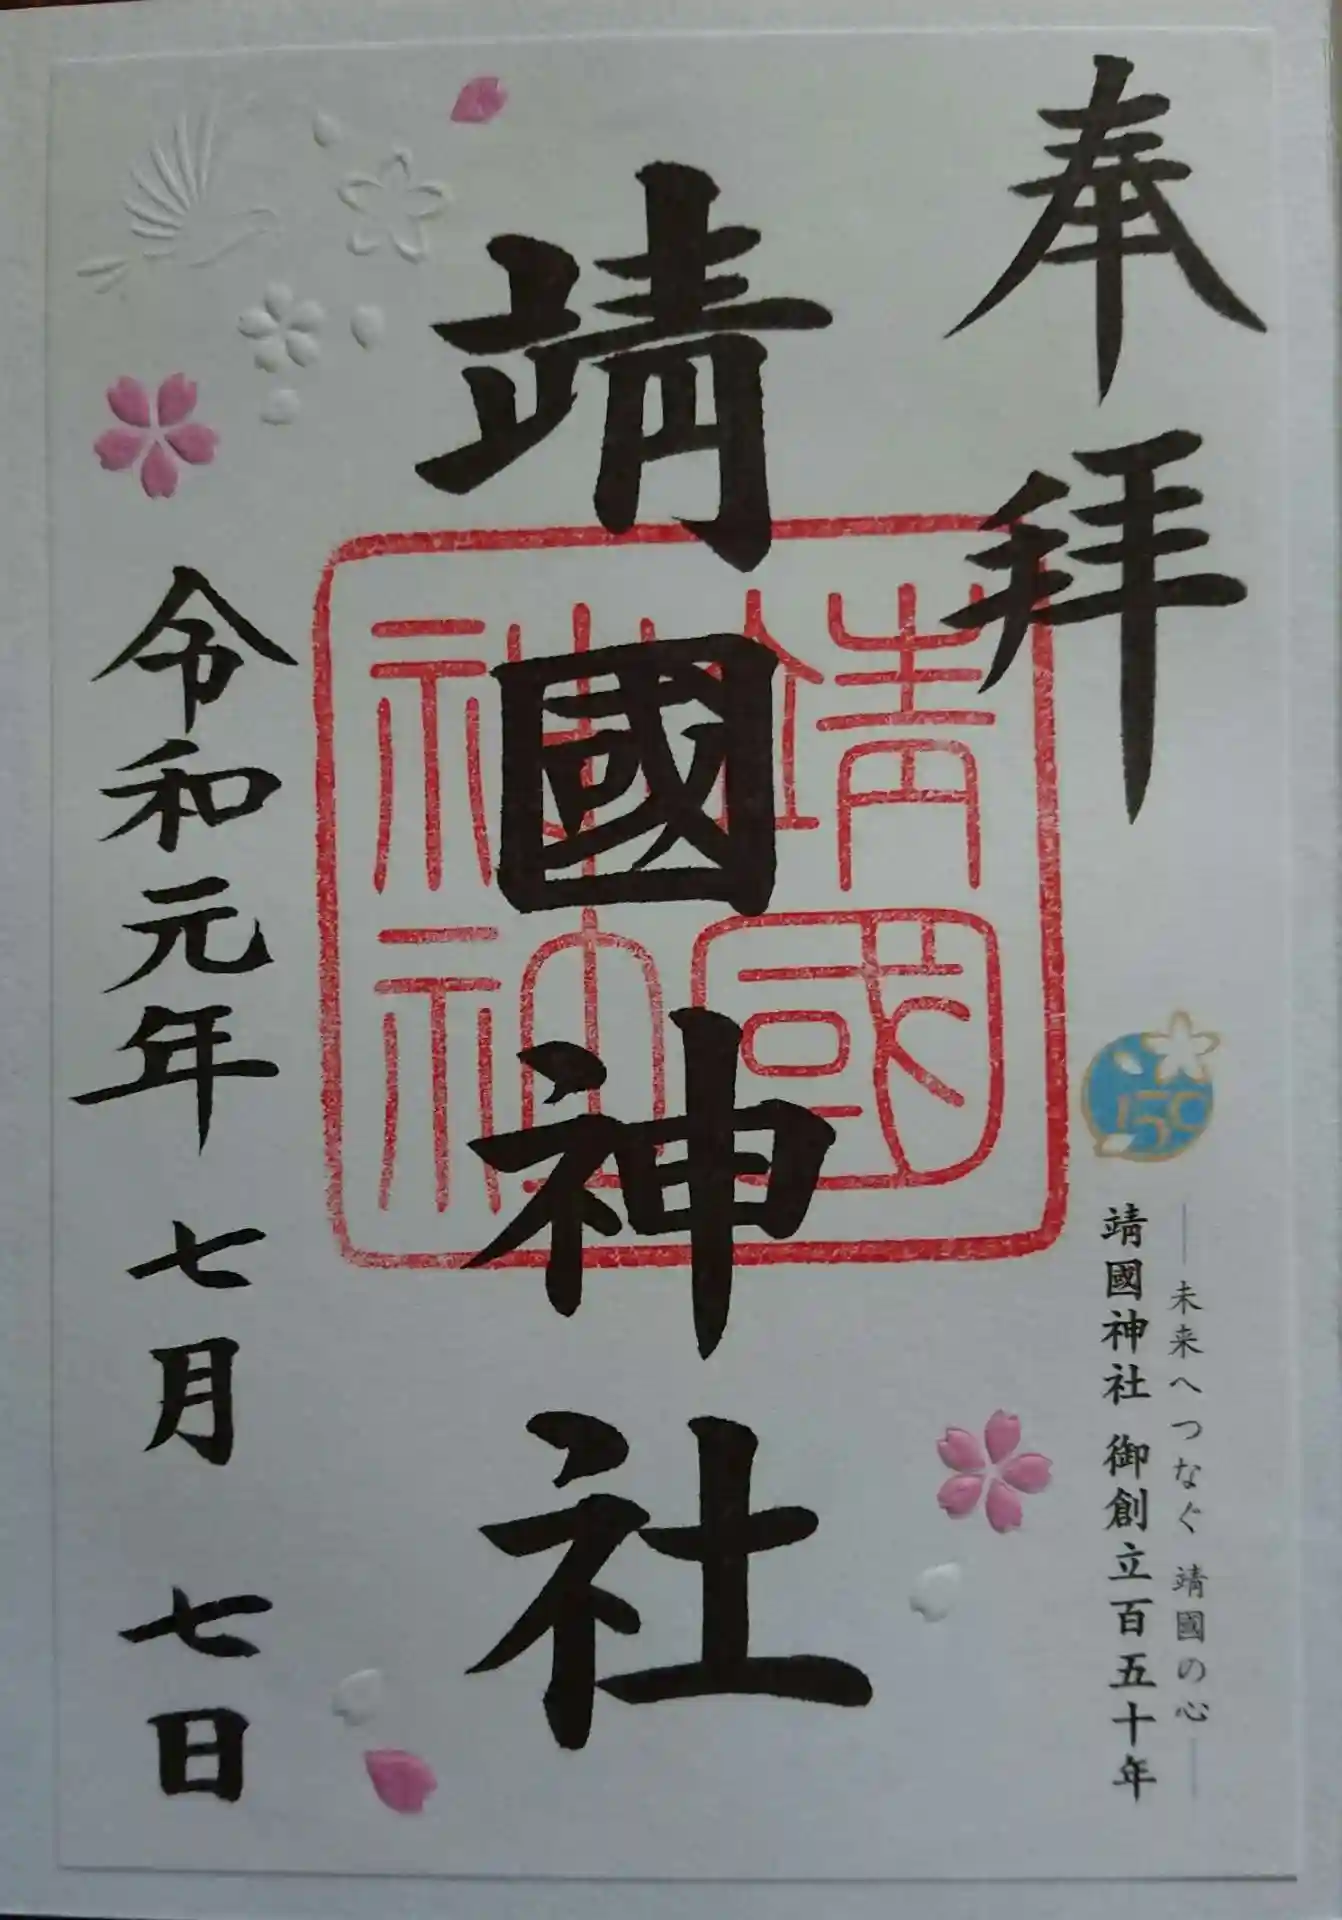 奉拝
150
―未来へつなぐ 靖國の心―
靖國神社 御創立百五十年
靖國神社
靖國
神社
令和元年 七月 七日